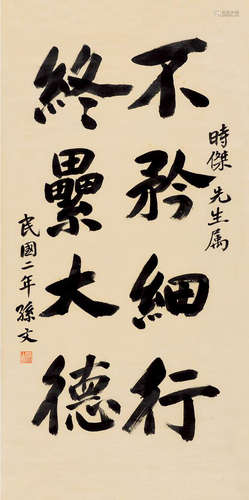 時傑先生属
不矜細行
終累大德
民國二年孫文